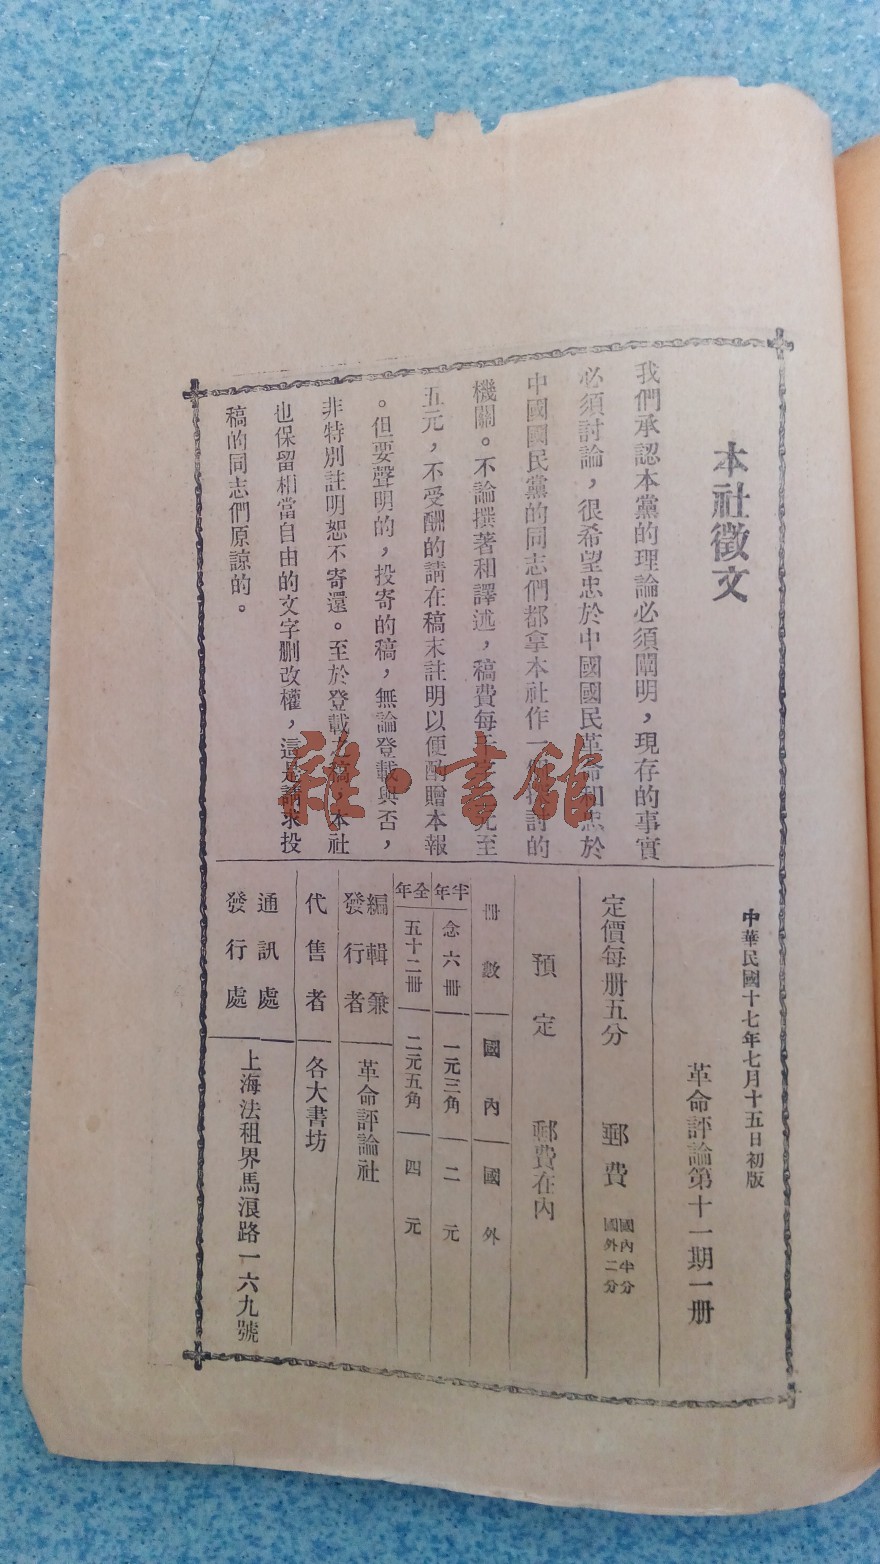 本社徵文
我們承認本黨的理論必須闡明,現存的事實
必須討論,很希望忠於中國國民革命和忠於
中國國民黨的同志們都拿本社作一個探討的
機關。不論撰著和譯述,稿費每千字 元至
五元,不受酬的請在稿末註明以便酌贈本報
。但要聲明的,投寄的稿,無論登載與否,
非特別註明恕不寄還。至於登載之稿,本社
也保留相當自由的文字刪改權,這是請求投
稿的同志們原諒的。
中華民國十七年七月十五日初版
革命評論第十一期一册
定價每册五分 郵費 國內半分 國外二分
預定 郵費在內
冊數 國內 國外
半年 念六冊 一元三角 二元
全年 五十二冊 二元五角 四元
編輯兼發行者 革命評論社
代售者 各大書坊
通訊處 發行處 上海法租界馬浪路一六九號
雜·書館